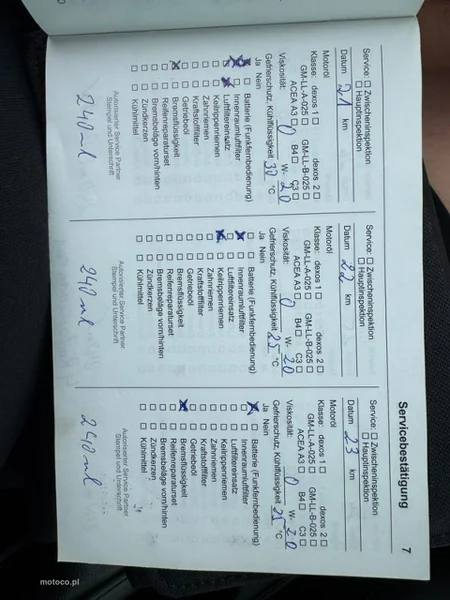 Servicebestätigung 7
Service: Zwischeninspektion
Hauptinspektion
Datum 21 km
Motoröl
Klasse: dexos 1 dexos 2
GM-LL-A-025 GM-LL-B-025
ACEA A3 B4 C3
Viskosität: 0 W- 20
Gefrierschutz, Kühlflüssigkeit 30 °C
Ja Nein
Batterie (Funkfernbedienung)
Innenraumluftfilter
Luftfiltereinsatz
Keilrippenriemen
Zahnriemen
Kraftstofffilter
Getriebeöl
Bremsflüssigkeit
Reifenreparaturset
Bremsbeläge vorn/hinten
Zündkerzen
Kühlmittel
Autorisierter Service Partner
Stempel und Unterschrift
240 ml
Service: Zwischeninspektion
Hauptinspektion
Datum 22 km
Motoröl
Klasse: dexos 1 dexos 2
GM-LL-A-025 GM-LL-B-025
ACEA A3 B4 C3
Viskosität: 0 W- 20
Gefrierschutz, Kühlflüssigkeit 25 °C
Ja Nein
Batterie (Funkfernbedienung)
Innenraumluftfilter
Luftfiltereinsatz
Keilrippenriemen
Zahnriemen
Kraftstofffilter
Getriebeöl
Bremsflüssigkeit
Reifenreparaturset
Bremsbeläge vorn/hinten
Zündkerzen
Kühlmittel
Autorisierter Service Partner
Stempel und Unterschrift
240 ml
Service: Zwischeninspektion
Hauptinspektion
Datum 23 km
Motoröl
Klasse: dexos 1 dexos 2
GM-LL-A-025 GM-LL-B-025
ACEA A3 B4 C3
Viskosität: 0 W- 20
Gefrierschutz, Kühlflüssigkeit 25 °C
Ja Nein
Batterie (Funkfernbedienung)
Innenraumluftfilter
Luftfiltereinsatz
Keilrippenriemen
Zahnriemen
Kraftstofffilter
Getriebeöl
Bremsflüssigkeit
Reifenreparaturset
Bremsbeläge vorn/hinten
Zündkerzen
Kühlmittel
Autorisierter Service Partner
Stempel und Unterschrift
240 ml
motoco.pl